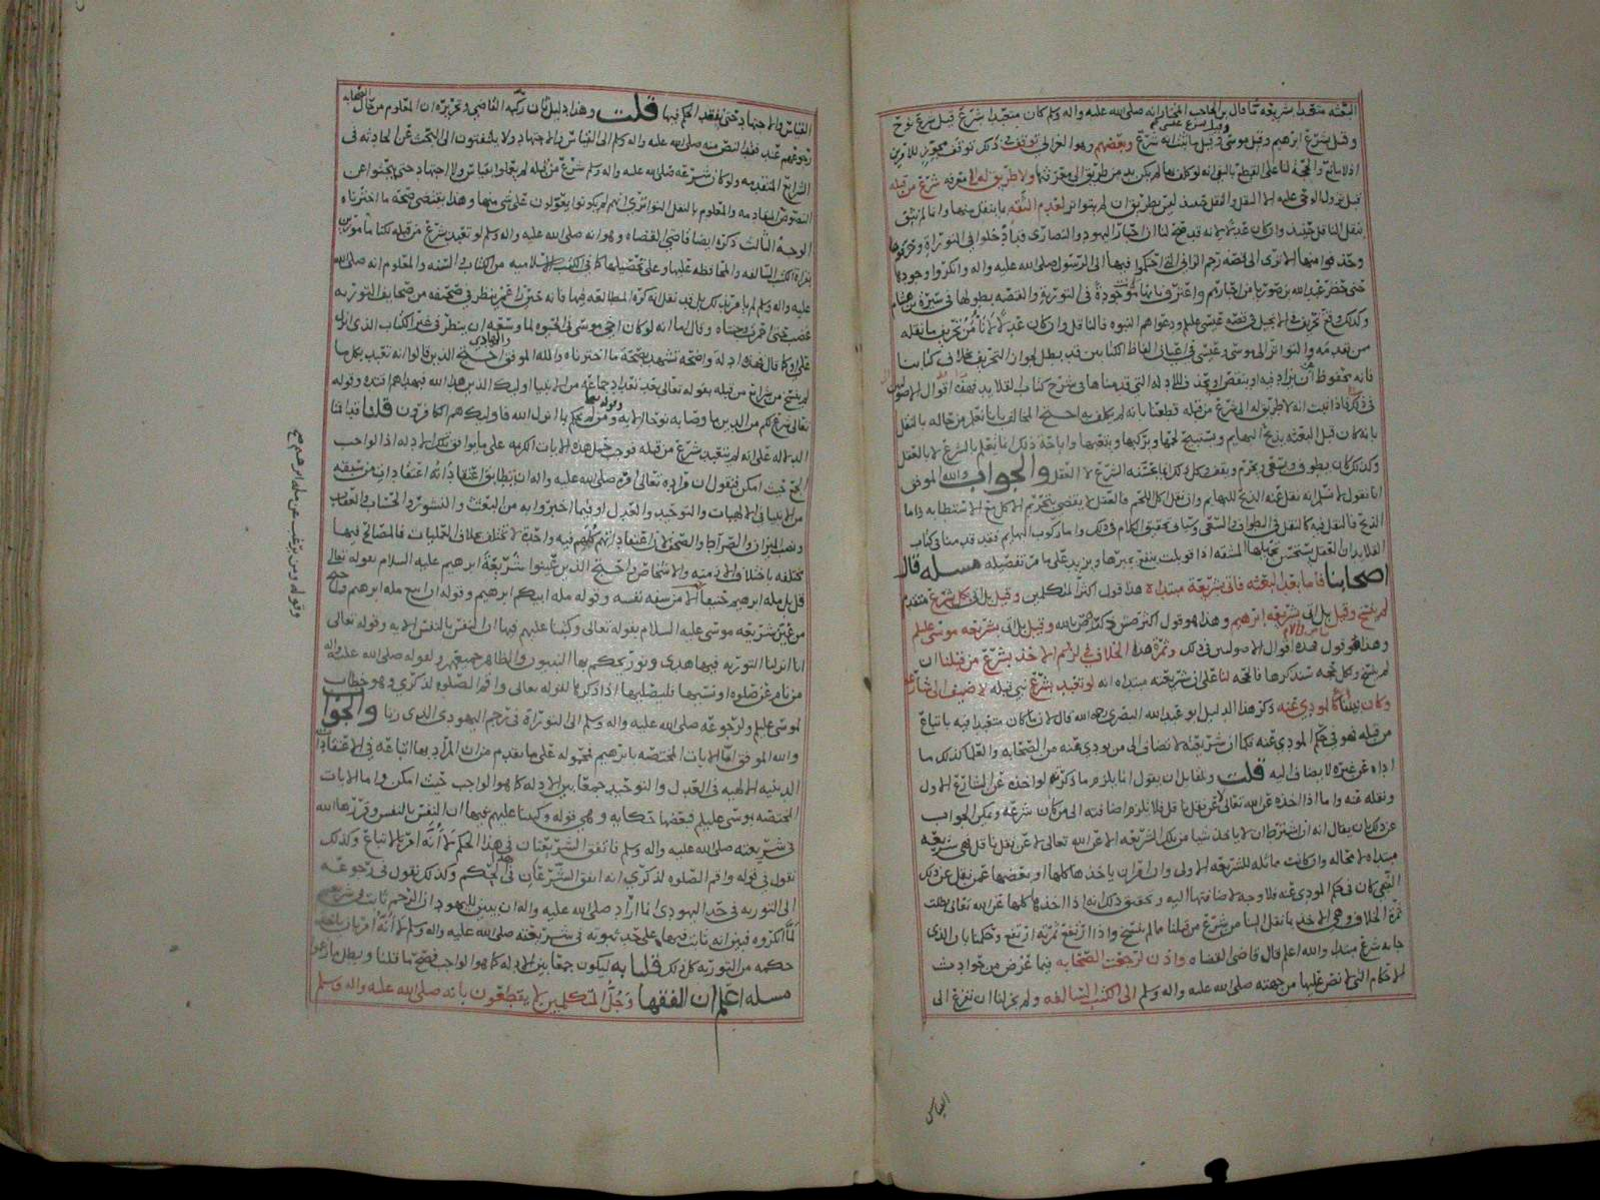 البعثه متعبدا بشريعه ما قال بن الحاجب المختار انه صلى الله عليه واله وسلم كان متعبدا بشرع قبل شرع نوح
وقيل شرع عيسى
وقيل شرع ابرهيم وقيل موسى وقيل ما ثبت انه شرع وبعضهم وهوا الغزالي توقف في ذلك توقف تجويز للامرين
اذ لا مانع والحجة لنا على القطع بالنفي انه لو كلف بها لم يكن بد من طريق الى معرفتها ولا طريق له الى معرفه شرع من قبله
قبل نزول الوحي عليه الا النقل والنقل ليس بطريق ان لم يتواتر لعدم الثقه ما ينقل منها وانا لم نثق
بنقل الناقل وان كان عدلا لانه قد صح لنا ان احبار اليهود والنصارى قد ادخلوا في التوراة وحرفوها
وحذفوا منها الا ترى الى قصه رجم الزاني التي احتكموا فيها الى الرسول صلى الله عليه واله وانكروا وجودها
حتى حضر عبد الله بن صوريا من احبارهم واعترف بانها موجودة في التورية والقصه بطولها في سيرة بن هشام
وكذلك وقع تحريف في الانجيل في قصه عيسى عليلم ودعواهم النبوه قال الناقل وان كان عدلا لا نامن تحريف ما نقله
من تقدمه والتواتر الى موسى وعيسى في اعيان الفاظ الكتابين قد بطل لجواز التحريف بخلاف كتابنا
فانه محفوظ ان يزاد فيه او ينقص او يحذف للادله التي قدمناها في شرح كتاب القلايد فهذه اقوال الاصوليين
في ذلك فاذا ثبت انه لا طريق له الى شرع من قبله قطعنا بانه لم يكلف به احتج المخالف بانا نعلم من حاله بالنقل
بانه كان قبل البعثه يذبح البهايم ويستبيح لحمها ويركبها ويتعبها واباحة ذلك انما تعلم بالشرع لا بالعقل
وكذلك كان يطوف ويسعى ويحرم ويقف وكل ذلك انما يحسنه الشرع لا العقل والجواب والله الموفق
انا نقول لا نسلم انه نقل عنه الذبح للبهايم وان نقل اكل اللحم فالعقل لا يقضي بتحريم الاكل مع الاستطابه واما
الذبح فالنقل فيه كالنقل في الطواف والسعي وسياتي تحقيق الكلام في ذلك واما ركوب البهايم فقد قدمنا في كتاب
القلايد ان العقل يستحسن تحميلها المشقه اذا قوبلت بنفع يجبرها ويزيد على ما مر تفصيله مسله قال
اصحابنا فاما بعد البعثه فاتى بشريعة مبتداه هذا قول اكثر المتكلمين وقيل بل اتى بكل شرع متقدم
لم ينسخ وقيل بل اتى بشريعه ابرهيم وهذا هو قول اكثر وقيل بل اتى بشريعه موسى عليلم
وهذا هو قول فهذه اقوال الاصوليين في ذلك وثمرة هذا الخلاف في لزوم الاخذ بشرع من قبلنا ان
لم ينسخ ولكل حجه سنذكرها فالحجه لنا على ان شريعته مبتداه انه لو تعبد بشرع نبي قبله لاضيف الى شارعه
وكان نبينا كالمودي عنه ذكر هذا الدليل ابو عبد الله البصري رحمه الله قال لان ما كان متعبدا فيه باتباع
من قبله فهو في حكم المودي عنه فكما ان شريعتنا لا تضاف الى من يودي عنه من الصحابه والعلما كذلك ما
اداه عن غيره لا يضاف اليه قلت ولقايل ان يقول انما يلزم ما ذكرتم لو اخذه عن الشارع الاول
ونقله عنه واما اذا اخذه عن الله تعالى لا عن نقل ناقل فلا يلزم اضافته الى من كان شرعه ويمكن الجواب
عن ذلك بان يقال انه ان اشترط ان لا ياخذ شيا من تلك الشريعه الا عن الله تعالى لا عن نقل ناقل فهي شريعه
مبتداه لا محاله وان كانت مماثله للشريعه الاولى وان اقر ان ياخذها كلها او بعضها عمن نقل عن ذلك
النبي كان في حكم المودي عنه فلا وجه لاضافتها اليه وتحقيق ذلك انه اذا اخذها كلها عن الله تعالى بطلت
ثمرة الخلاف وهي الاخذ بما نقل الينا من شرع من قبلنا ما لم ينسخ واذا ارتفع ثمرته ارتفع وحكمنا بان الذي
جا به شرع مبتدا والله اعلم قال قاضي القضاه واذن لرجعت الصحابه فيما عرض من حوادث
الاحكام التي لا نص عليها من جهته صلى الله عليه واله وسلم الى الكتب السالفه ولم يجز لنا ان نفزع الى
القياس
القياس والاجتهاد حتى نفقد الحكم فيها قلت وهذا دليل ثان ذكره القاضي وتحريره ان المعلوم من حال الصحابه
رجوعهم عند فقد النص منه صلى الله عليه واله وسلم الى القياس والاجتهاد ولا يلتفتون الى البحث عن الحادثه في
الشرايع المتقدمه ولو كان شرعه صلى الله عليه واله وسلم شرع من قبله لم يفعلوا بقياس ولا اجتهاد حتى يبحثوا عن
النصوص المتقدمه والمعلوم بالنقل التواتري انهم لم يكونوا يعولون على شي منها وهذا يقتضي صحة ما اخترناه
الوجه الثالث ذكره ايضا قاضي القضاه وهو انه صلى الله عليه واله وسلم لو تعبد بشرع من قبله لكنا مامورين
بقراة الكتب السالفه والمحافظه عليها وعلى تحصيلها كما في الكتب الاسلاميه من الكتاب والسنه والمعلوم انه صلى الله
عليه واله وسلم لم يامر بذلك بل قد نقل انه كره المطالعه فيها فانه حين راى عمر ينظر في صحيفه من صحايف التوريه
غضب حتى احمرت وجنتاه وقال اما انه لو كان اخي موسى في الحيوه لما وسعه ان ينظر في غير الكتاب الذي انزل
علي او كما قال فهذه ادلة واضحه تشهد بصحة ما اخترناه والله الموفق والهادي احتج الذين قالوا انه تعبد بكل ما
لم ينسخ من شرايع من قبله بقوله تعالى بعد تعداد جماعه من الانبيا اوليك الذين هدا الله فبهداهم اقتده وقوله
تعالى شرع لكم من الدين ما وصا به نوحا الايه وقوله تعالى ومن لم يحكم بما انزل الله فاوليك هم الكافرون قلنا قد اقمنا
الدلاله على انه لم يتعبد بشرع من قبله فوجب حمل هذه الايات الكريمه على ما يوافق تلك الادله اذ الواجب
الجمع حيث امكن فنقول ان مراده تعالى امره صلى الله عليه واله ان يطابق اعتقاده اعتقادات من سبقه
من الانبيا في الالهيات والتوحيد والعدل او فيما اخبروا به من البعث والنشور والحساب والعقاب
ونصب الميزان والصراط والصحف لان اعتقاداتهم كلهم فيه واحدة لا تختلف بخلاف العمليات فالمصالح فيها
مختلفه باختلاف الازمنه والاشخاص واحتج الذين عينوا شريعة ابرهيم عليه السلام بقوله تعالى
قل بل مله ابرهيم حنيفا الا من سفه نفسه وقوله مله ابيكم ابرهيم وقوله ان اتبع مله ابرهيم واحتج
من عين شريعه موسى عليه السلام بقوله تعالى وكتبنا عليهم فيها ان النفس بالنفس الايه وقوله تعالى
انا انزلنا التوريه فيها هدى ونور يحكم بها النبيون والظاهر جميعهم ولقوله صلى الله عليه واله
من نام عن صلوه او نسيها فليصليها اذا ذكرها لقوله تعالى واقم الصلوه لذكري وهو خطاب
لموسى عليلم ولرجوعه صلى الله عليه واله وسلم الى التوراة في رجم اليهودي الذي زنا والجواب
والله الموفق اما الايات المختصه بابرهيم فمحموله على ما تقدم من ان المراد بها اتباعه في الاعتقادات
الدينيه الالهيه في العدل والتوحيد جمعا بين الادله كما هو الواجب حيث امكن واما الايات
المختصه بموسى عليلم فبعضها حكايه وهي قوله وكتبنا عليهم فيها ان النفس بالنفس وقررها الله
في شريعته صلى الله عليه واله وسلم فاتفق الشريعتان في هذا الحكم لا انه امر بالاتباع وكذلك
نقول في قوله واقم الصلوه لذكري انه اتفق الشرعان في هذا الحكم وكذلك نقول في رجوعه
الى التوريه في حد اليهودي انما اراد صلى الله عليه واله ان يبين لليهود ان الرجم ثابت في شريعتهم
لما انكروه فبين انه ثابت فيها على حد ثبوته في شريعته صلى الله عليه واله وسلم لا انه امر بان ياخذ
حكمه من التوريه كل ذلك قلنا به ليكون جمعا بين الادله كما هو الواجب فصح ما قلنا وبطل ما زعموا
مسله اعلم ان الفقها وجل المتكلمين لم يقطعون بانه صلى الله عليه واله وسلم
وقوله ومن يرغب عن مله ابرهيم صح